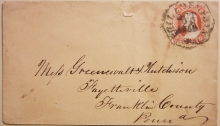 Mess Greenewalt & Hutchison
Fayettville
Franklin County
Penna